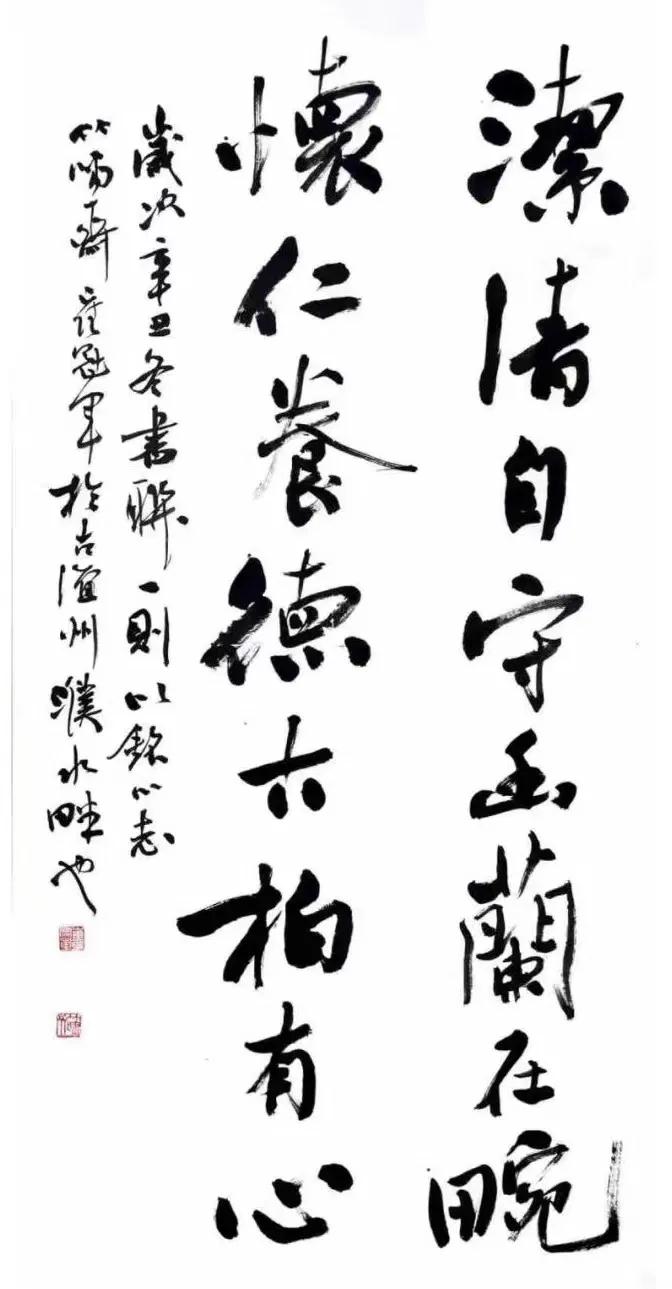 潔清自守幽蘭在畹
懷仁養德古柏有心
歲次辛丑冬書聯一則以銘心志
齋崔冠軍於古澶州濮水畔也